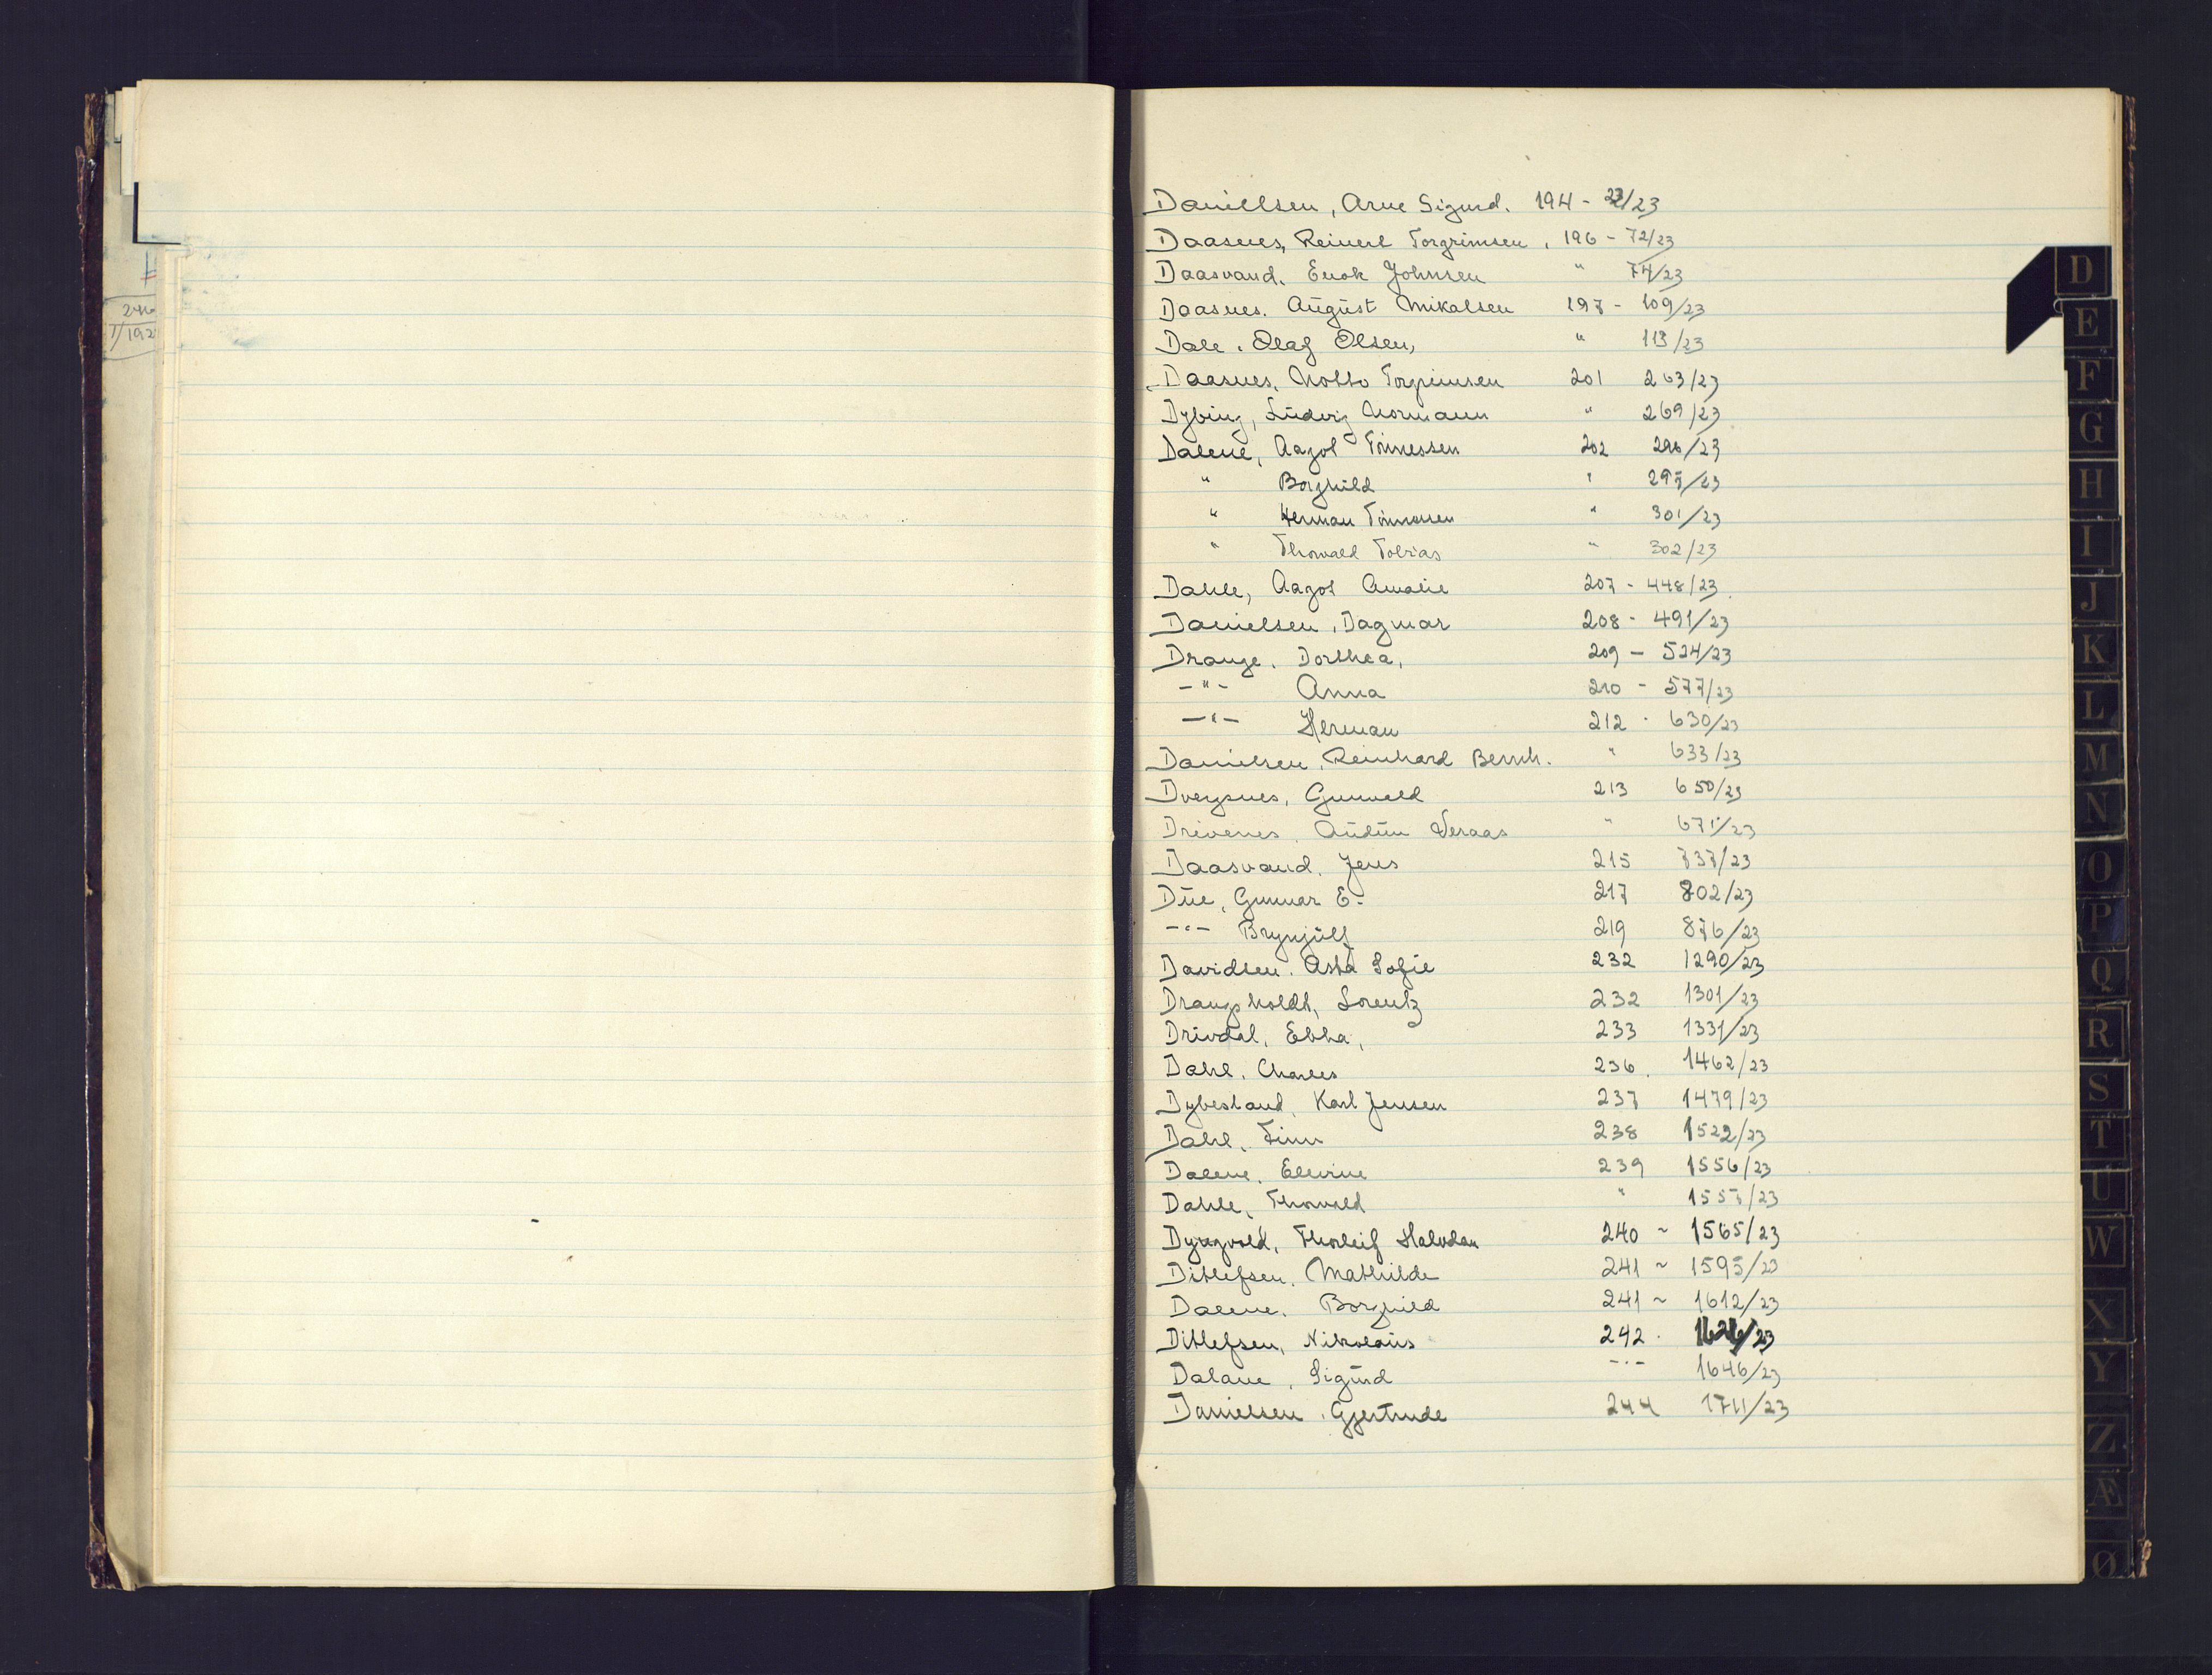 Daniellsen, Arne Sigurd. 194 - /23
Daasnes, Reinert Torgrimsen, 196 - 72/23
Daasvand. Enok Johnsen " 74/23
Daasnes. August Mikalsen 197 - 109/23
Dale. Olaf Olsen, " 113/23
Daasnes, Notto Torgrimsen 201 263/23
Dybing, Ludvig Normann " 269/23
Dalene, Aagot Tønnessen 202 296/23
" Borghild " 297/23
" Herman Tönnessen " 301/23
" Thorvald Tobias " 302/23
Dahle, Aagot Amalie 207 - 448/23.
Danielsen, Dagmar 208 - 491/23
Drange. Dorthea, 209 - 524/23
-"- Anna 210 - 577/23
-"- Herman 212 - 630/23
Danielsen, Reinhard Bernh. " 633/23
Dvergsnes, Gunvald 213 650/23
Drivenes. Audün Veraas " 671/23
Daasvand. Jens 215 737/23
Düe, Gunnar E. 217 802/23
-"- Brynjülf 219 876/23
Davidsen. Asta Sofie 232 1290/23
Drangsholdt, Lorentz 232 1301/23
Drivdal, Ebba, 233 1331/23
Dahl. Charles 236. 1462/23
Dybesland, Karl Jensen 237 1479/23
Dahl. Finn 238 1522/23
Dalene. Elevine 239 1556/23
Dahle, Thorvald " 1557/23
Thorleif Halvdan 240 ~ 1565/23
Ditlefsen. Mathilde 241 ~ 1595/23
Dalene. Borghild 241 ~ 1612/23
Ditlefsen, Nikolaüs 242. /23
Dalane, Sigürd -"- 1646/23
Danielsen. Gjertrude 244 1711/23
D
E
F
G
H
I
J
K
L
M
N
O
P
Q
R
S
T
U
W
X
Y
Z
Æ
Ø